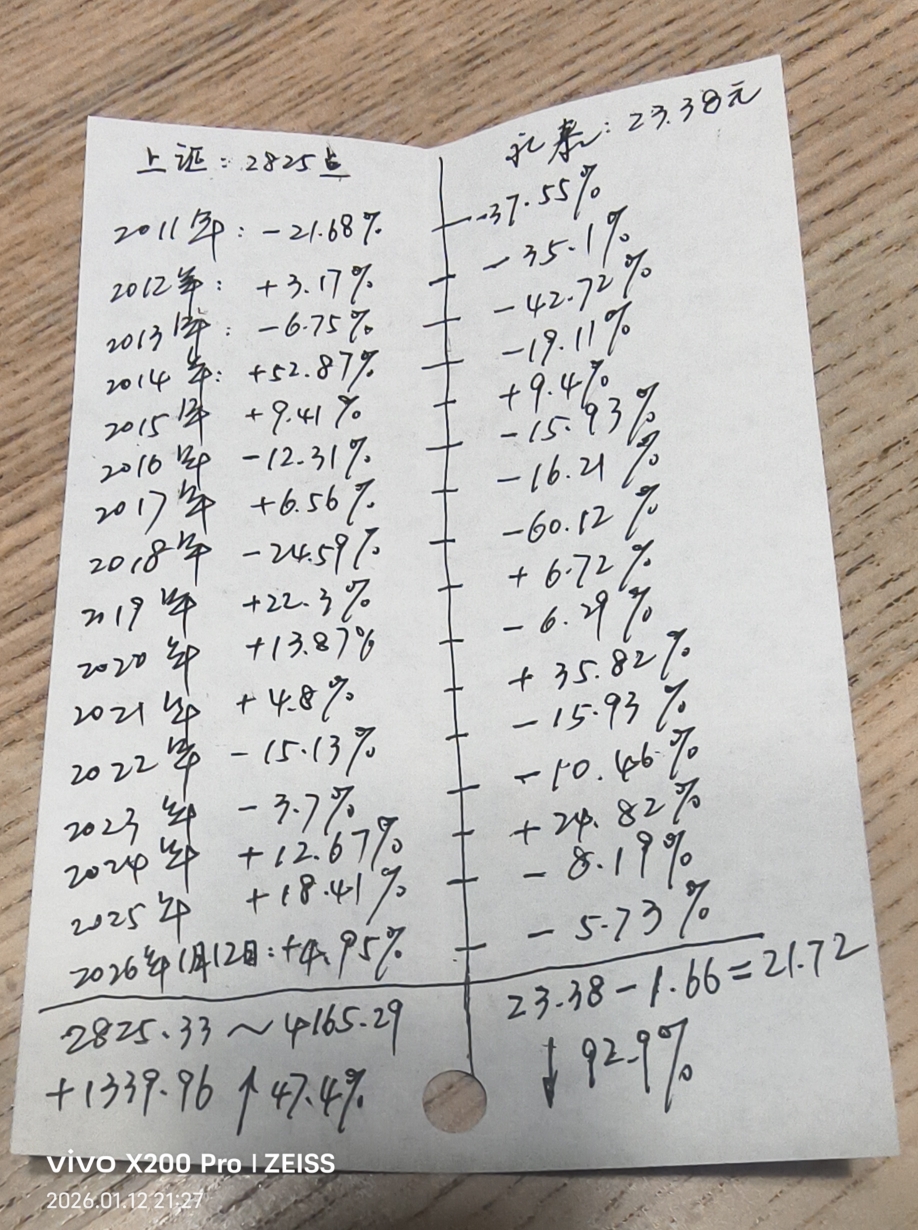 上证：2825点 永泰：23.38元
2011年：-21.68% -37.55%
2012年：+3.17% -35.1%
2013年：-6.75% -42.72%
2014年：+52.87% -19.11%
2015年 +9.41% +9.4%
2016年 -12.31% -15.93%
2017年 +6.56% -16.21%
2018年 -24.59% -60.12%
2019年 +22.3% +6.72%
2020年 +13.87% -6.29%
2021年 +4.8% +35.82%
2022年 -15.13% -15.93%
2023年 -3.7% -10.46%
2024年 +12.67% +24.82%
2025年 +18.41% -8.19%
2026年1月12日：+4.95% -5.73%
2825.33～4165.29 23.38-1.66=21.72
+1339.96 ↑47.4% ↓92.9%
vivo X200 Pro | ZEISS
2026.01.12 21:27